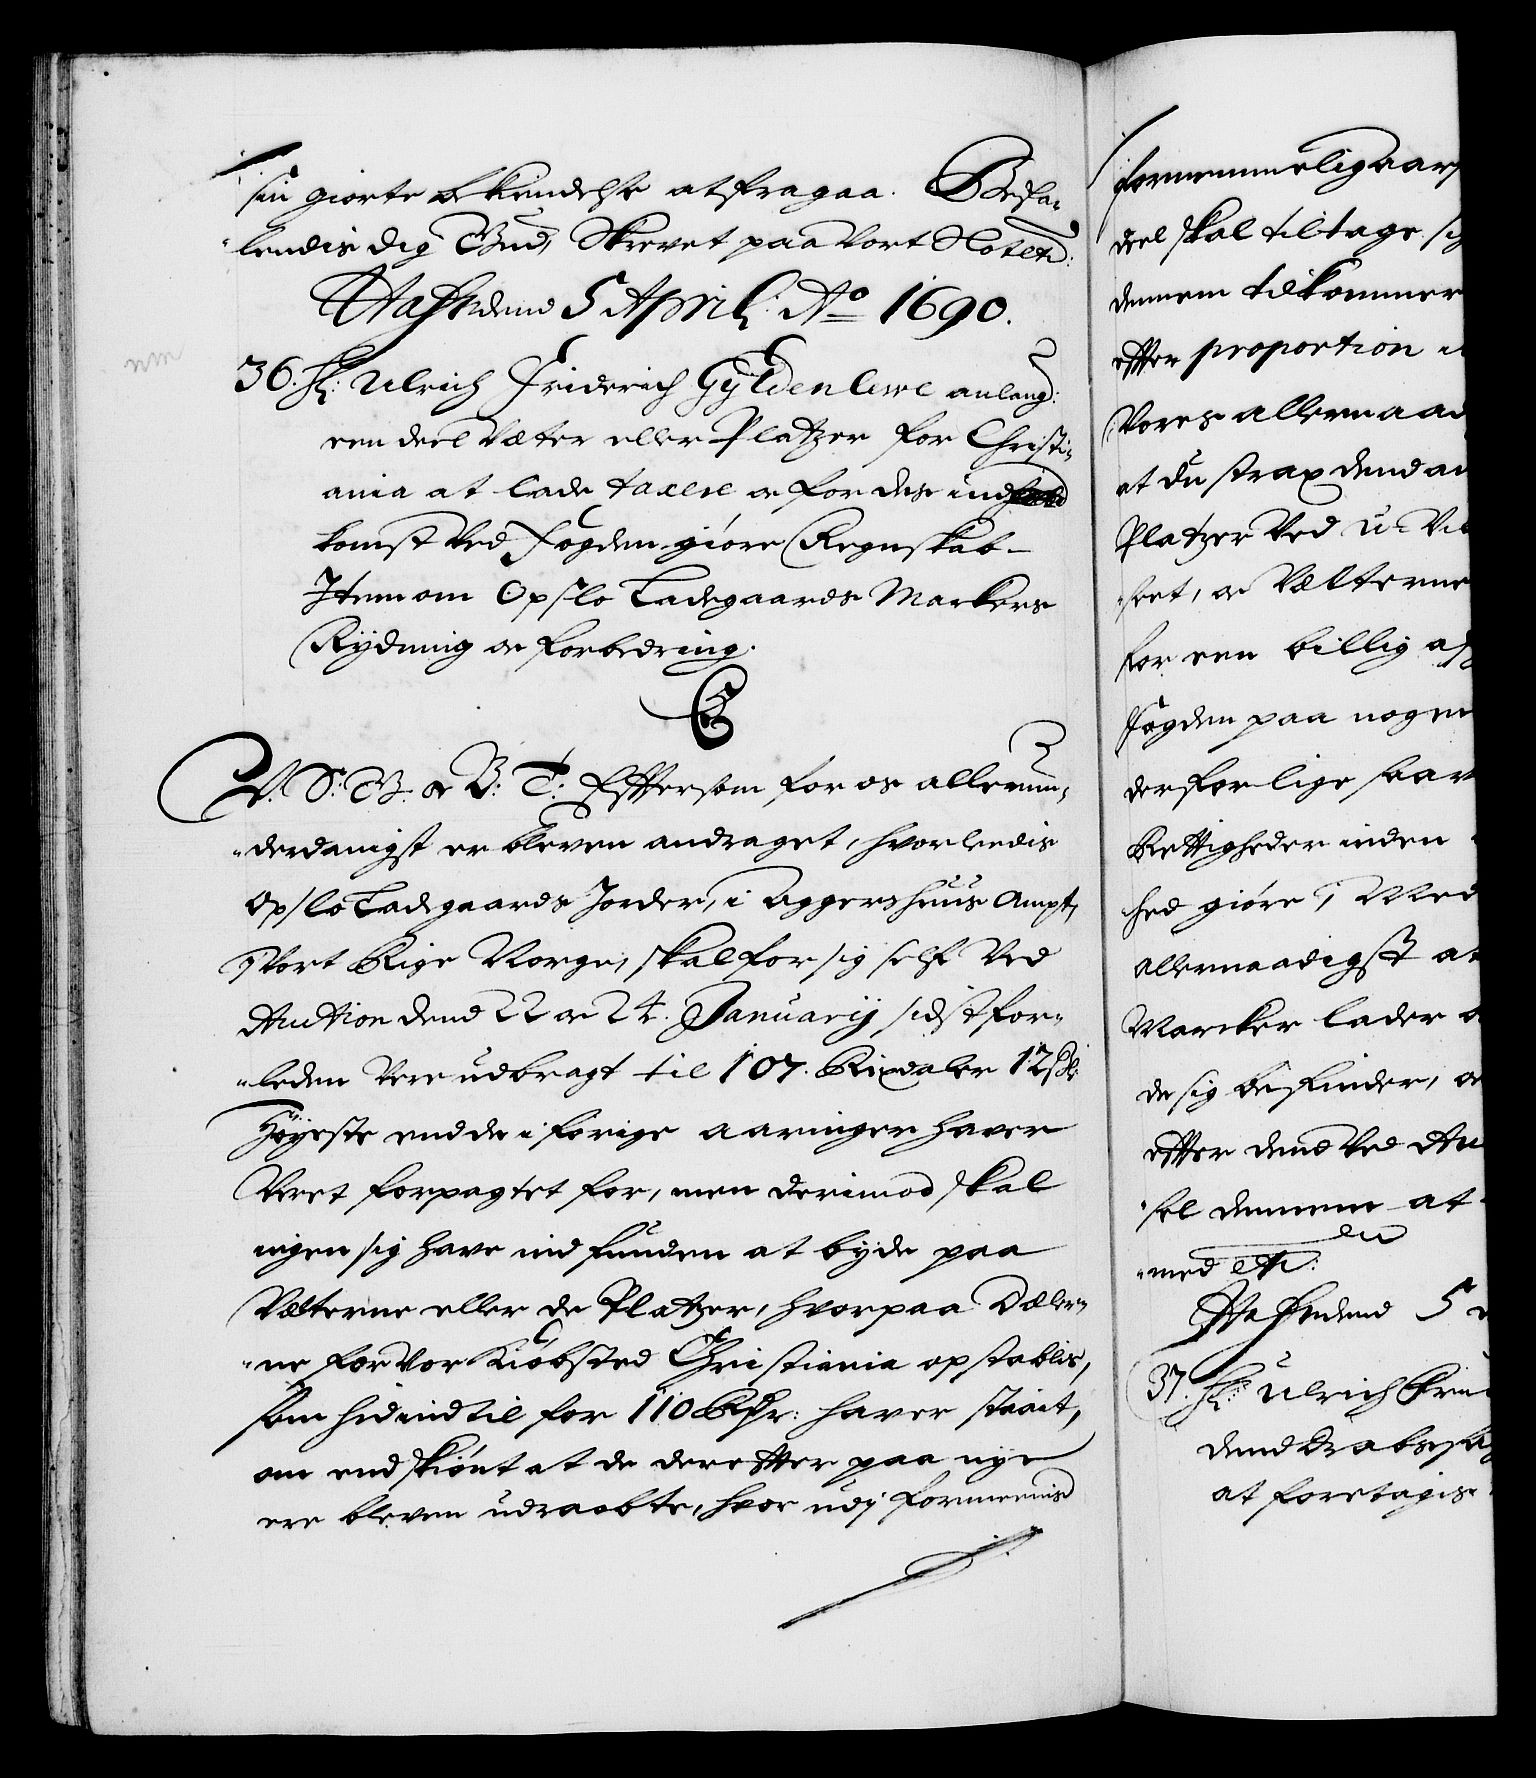 sin giorte Bekiendelse atfragaa. Befa-
lendis dig Gud, Skrevet paa Vort Slot etc:
Hafn dend 5 April: Ao 1690.
36. Hr: Ulrich Friderich Gyldenlewe anlang:
een deel Væter eller Platzer for Christi-
ania at lade taxere oc for dess ind
komst ved Fogden giøre Regnskab-
Item om Opslo Ladegaards Markers
Rydning oc forbedring.
C5
V. S: G: oc V: T: Efftersom for os allerun-
derdanigst er bleven andraget, hvorledis
Opslo Ladegaards Jorder, i Aggershuus Ampt,
i Vort Rige Norge, skal for sig self ved
Auction dend 22 oc 24. Januarij sidst for-
leden vere udbragt til 107. Rixdaler 12 sk:
Høyeste end de i forige aaringer haver
Veret forpagtet for, men derimod skal
ingen sig have indfunden at byde paa
Vælterne eller de Platzer, hvorpaa Dæler-
ne for Vor Kiøbsted Christiania opstablis,
som hid indtil for 110 Rdr: haver staait,
om end skiønt at de dereffter paa nye
ere bleven udraabte, hvor udj formeenis
fornemmelig aars
deel skal tiltage sig
dennem tilkommer
effter proportion
Vores allernaad
at du strax dend an
Platzer ved U-Vil
seet, oc Vælterne
for een billig af
Fogden paa nogen
derfor lige saa
Rettigheder inden
hed giøre, Med
allernaadigst at
Marcker lader
de sig befinder, oc
effter dend ved Au
sel dennem at
med etc:
Hafn dend 5
37. Hr: Ulrich
dend Drabssag
at foretagis